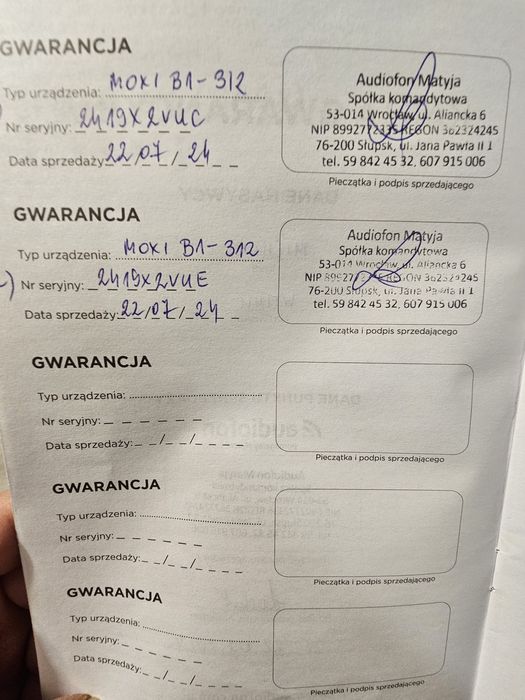 GWARANCJA
Typ urządzenia: MOXI B1-312
Nr seryjny: 2419X2VUC
Data sprzedaży: 22/07/24
Audiofon Matyja
Spółka komandytowa
53-014 Wrocław, ul. Aliancka 6
NIP 8992772335 REGON 362324245
76-200 Słupsk, ul. Jana Pawła II 1
tel. 59 842 45 32, 607 915 006
Pieczątka i podpis sprzedającego
GWARANCJA
Typ urządzenia: MOXI B1-312
Nr seryjny: 2419X2VUE
Data sprzedaży: 22/07/24
Audiofon Matyja
Spółka komandytowa
53-014 Wrocław, ul. Aliancka 6
REGON 362324245
76-200 Słupsk, ul. Jana Pawła II 1
tel. 59 842 45 32, 607 915 006
Pieczątka i podpis sprzedającego
GWARANCJA
Typ urządzenia:
Nr seryjny:
Data sprzedaży:
Pieczątka i podpis sprzedającego
GWARANCJA
Typ urządzenia:
Nr seryjny:
Data sprzedaży:
Pieczątka i podpis sprzedającego
GWARANCJA
Typ urządzenia:
Nr seryjny:
Data sprzedaży:
Pieczątka i podpis sprzedającego